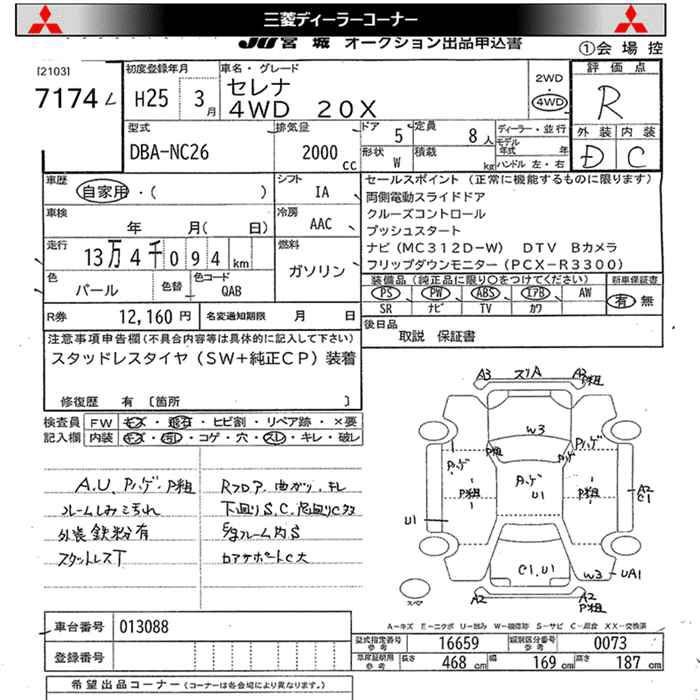 三菱ディーラーコーナー
JU宮城 オークション出品申込書
①会場控
[2103]
7174
初度登録年月
H25 3月
車名・グレード
セレナ
4WD 20X
2WD
4WD
評価点
R
外装 内装
D C
型式
DBA-NC26
排気量
2000 cc
ドア 5
定員 8人
形状 W
積載 kg
ディーラー・並行
モデル年式 年
ハンドル 左・右
車歴
自家用・( )
シフト
IA
セールスポイント (正常に機能するものに限ります)
両側電動スライドドア
クルーズコントロール
プッシュスタート
ナビ(MC312D-W) DTV Bカメラ
フリップダウンモニター(PCX-R3300)
車検
年 月( 日)
冷房
AAC
走行
13万4千094km
燃料
ガソリン
色
パール
色替
色コード
QAB
装備品(純正品に限り○をつけてください)
PS PW ABS エアB AW
SR ナビ TV カワ
新車保証書
有 無
R券 12,160円
名変通知期限 月 日
後日品
取説 保証書
注意事項申告欄(不具合内容等は具体的に記入して下さい)
スタッドレスタイヤ(SW+純正CP)装着
修復歴 有 〔箇所
検査員記入欄
FW キズ・飛石・ヒビ割・リペア跡・×要
内装 キズ・汚レ・コゲ・穴・スレ・キレ・破レ
A.U、Pハゲ・P粗
フレームしみ汚れ
外装鉄粉有
スタットレスT
Rフロア、曲がり、キレ
下廻りS、C、
内S
コアサポートC大
A3 スリA A3 P粗
W3
Pハゲ
P粗
Pハゲ
Pハゲ
U1
P粗
P粗
A2
C1
U1
C1,U1
W3
UA1
A2
A2
P粗
スペア
A-キズ E-エクボ U-凹み W-補修跡 S-サビ C-腐食 XX-交換済
車台番号 013088
登録番号
型式指定番号 16659
類別区分番号 0073
車庫証明用 長さ 468cm 幅 169cm 高さ 187cm
希望出品コーナー(コーナーは各会場により異なります。)